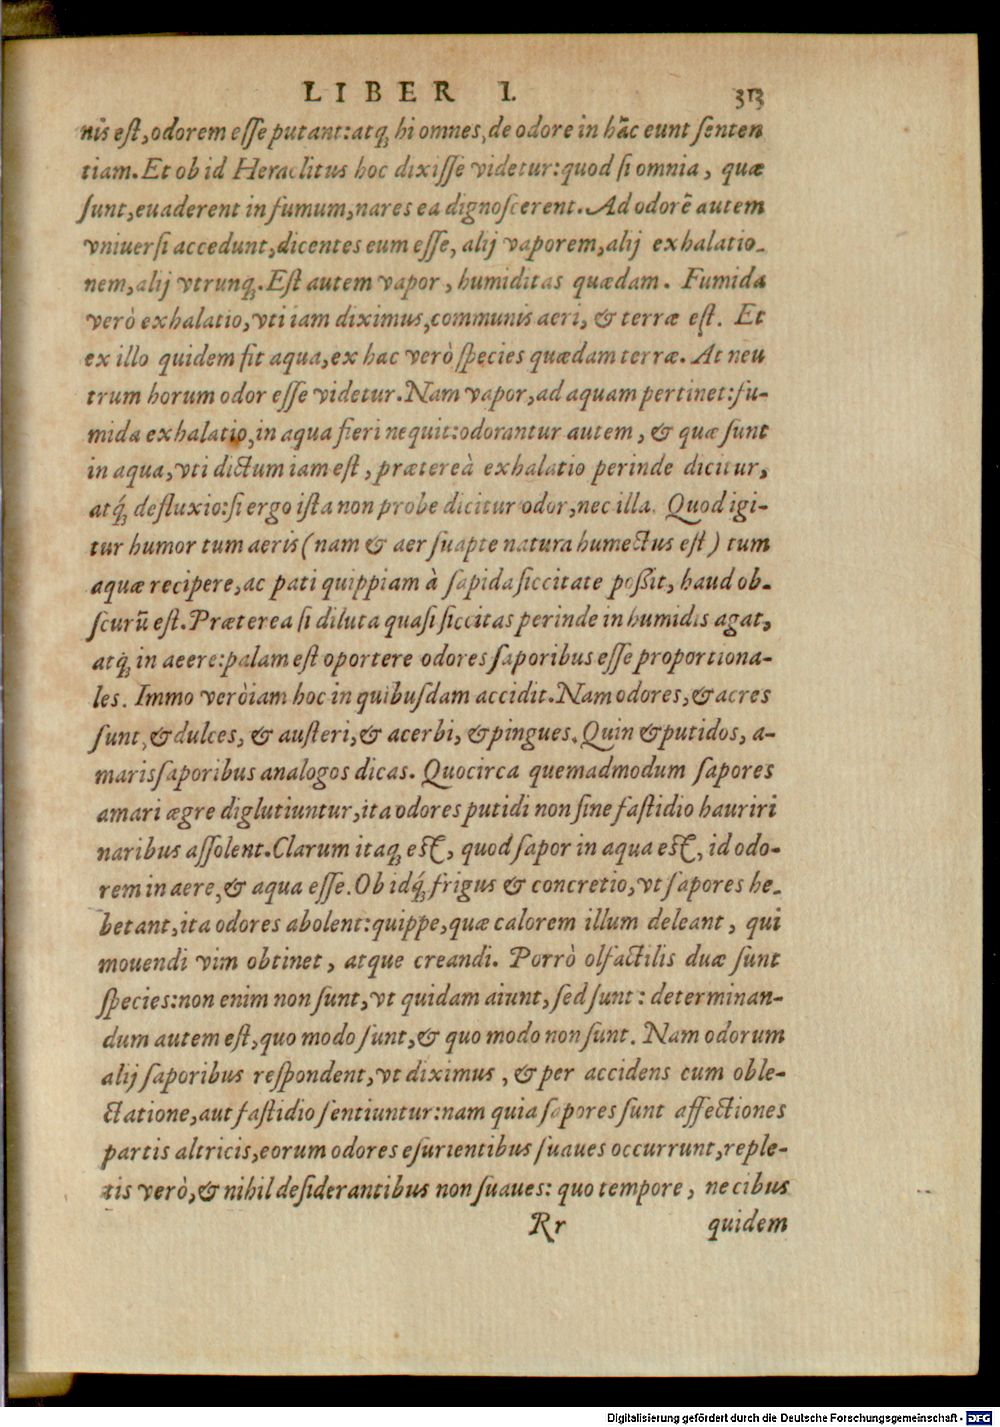 LIBER I. 313
nis est, odorem esse putant: atq́ꝫ hi omnes, de odore in hāc eunt senten
tiam. Et ob id Heraclitus hoc dixisse videtur: quod si omnia, quæ
sunt, euaderent in fumum, nares ea dignoscerent. Ad odorē autem
vniuersi accedunt, dicentes eum esse, alij vaporem, alij exhalatio-
nem, alij vtrunqꝫ. Est autem vapor, humiditas quædam. Fumida
verò exhalatio, vti iam diximus, communis aeri, & terræ est. Et
ex illo quidem fit aqua, ex hac verò species quædam terræ. At neu
trum horum odor esse videtur. Nam vapor, ad aquam pertinet: fu-
mida exhalatio, in aqua fieri nequit: odorantur autem, & quæ sunt
in aqua, vti dictum iam est, prætereà exhalatio perinde dicitur,
atq́ꝫ defluxio: si ergo ista non probe dicitur odor, nec illa. Quod igi-
tur humor tum aeris (nam & aer suapte natura humectus est) tum
aquæ recipere, ac pati quippiam à sapida siccitate poßit, haud ob-
scurū est. Præterea si diluta quasi siccitas perinde in humidis agat,
atq́ꝫ in aeere: palam est oportere odores saporibus esse proportiona-
les. Immo verò iam hoc in quibusdam accidit. Nam odores, & acres
sunt, & dulces, & austeri, & acerbi, & pingues. Quin & putidos, a-
maris saporibus analogos dicas. Quocirca quemadmodum sapores
amari ægre diglutiuntur, ita odores putidi non sine fastidio hauriri
naribus assolent. Clarum itaqꝫ est, quod sapor in aqua est, id odo-
rem in aere, & aqua esse. Ob idq́ꝫ frigus & concretio, vt sapores he-
betant, ita odores abolent: quippe, quæ calorem illum deleant, qui
mouendi vim obtinet, atque creandi. Porrò olfactilis duæ sunt
species: non enim non sunt, vt quidam aiunt, sed sunt: determinan-
dum autem est, quo modo sunt, & quo modo non sunt. Nam odorum
alij saporibus respondent, vt diximus, & per accidens cum oble-
ctatione, aut fastidio sentiuntur: nam quia sapores sunt affectiones
partis altricis, eorum odores esurientibus suaues occurrunt, reple-
tis verò, & nihil desiderantibus non suaues: quo tempore, ne cibus
Rr quidem
Digitalisierung gefördert durch die Deutsche Forschungsgemeinschaft - DFG